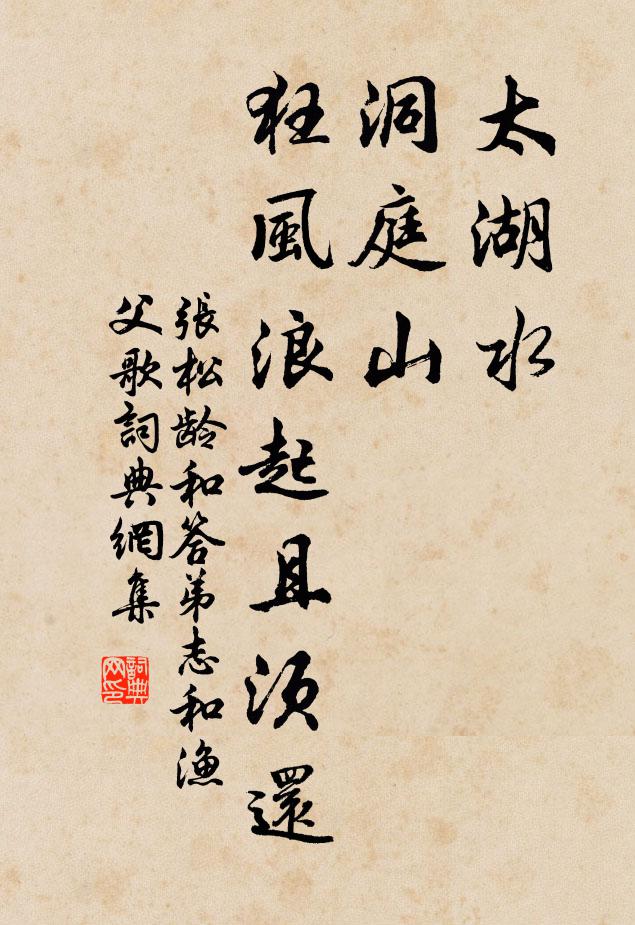 太湖水
洞庭山
狂風浪起且須還
張松龄和答弟志和漁
父歌詞典網集
詞典
网印